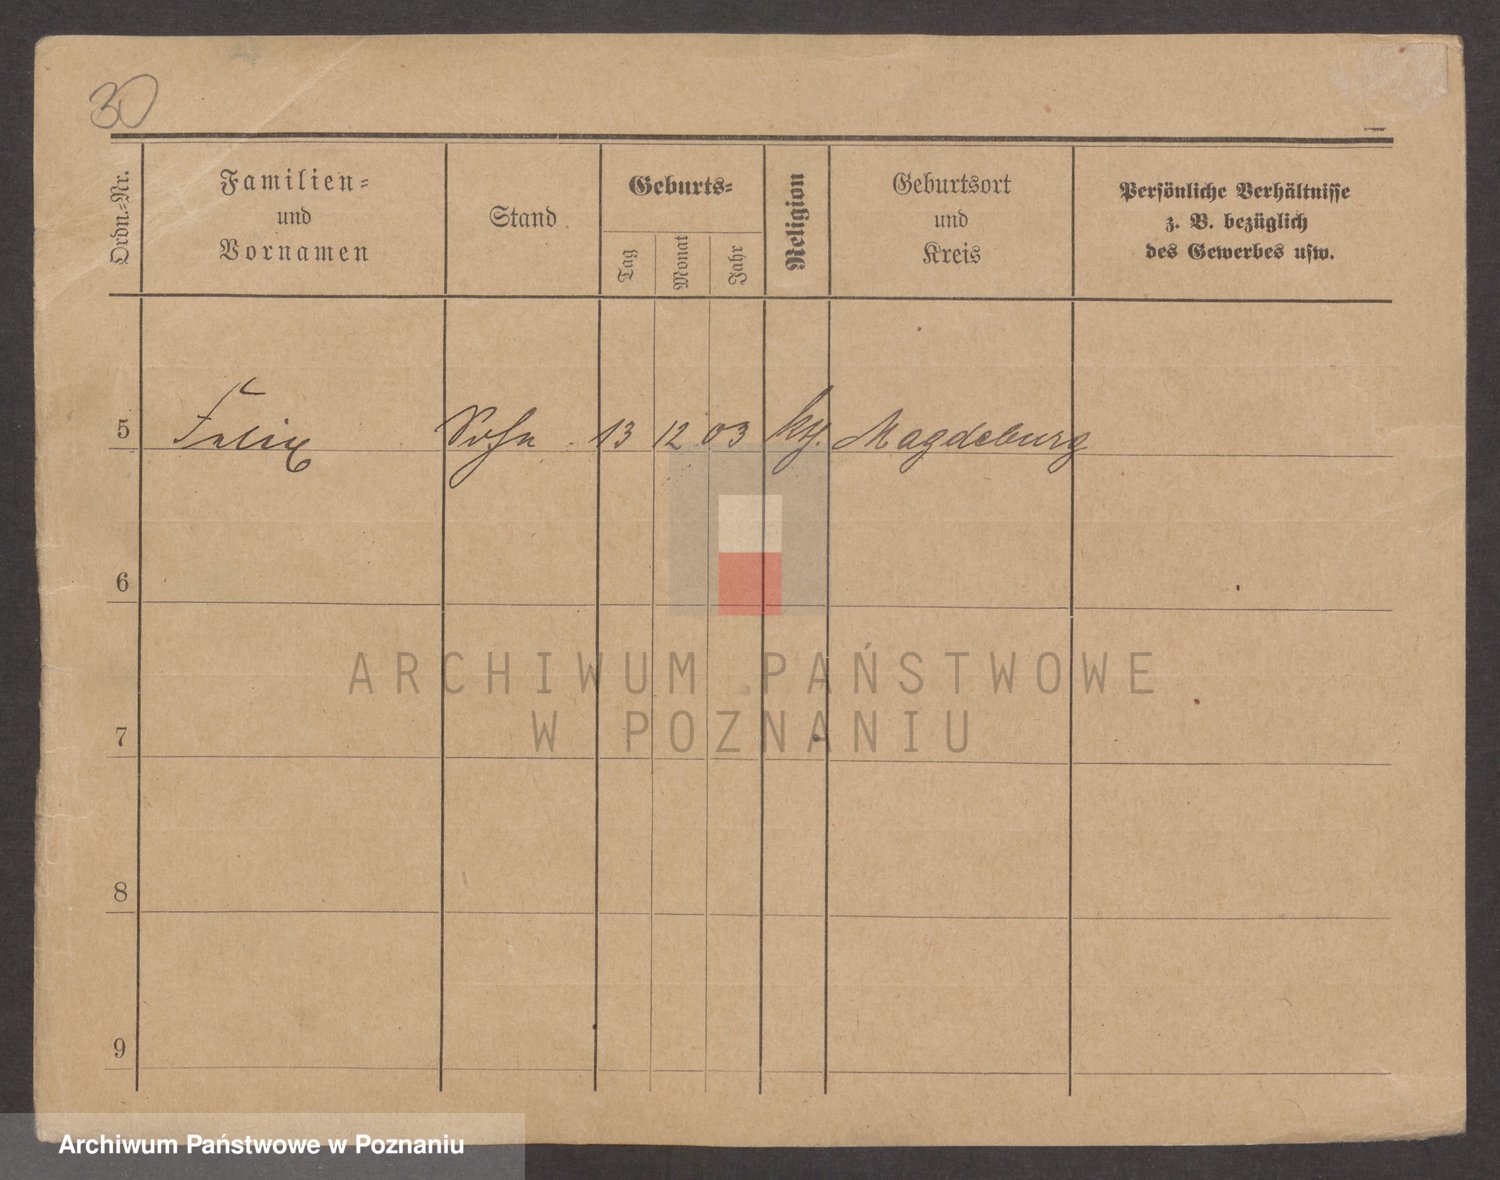 30
Ordn.-Nr.
Familien-
und
Vornamen
Stand
Geburts-
Tag
Monat
Jahr
Religion
Geburtsort
und
Kreis
Persönliche Verhältnisse
z. B. bezüglich
des Gewerbes usw.
5 Felix Sohn 13 12 03 Magdeburg
6
ARCHIWUM PAŃSTWOWE
W POZNANIU
7
8
9
Archiwum Państwowe w Poznaniu